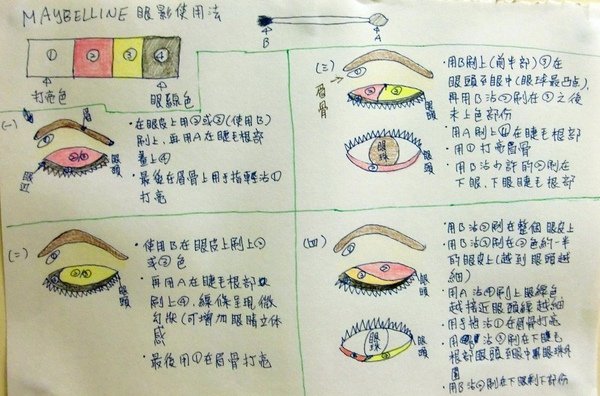 MAYBELLINE 眼影使用法
B A
① ② ③ ④
打亮色 眼線色
(一)
眉
眼頭
・在眼皮上用②或③(使用B)
刷上,再用A在睫毛根部
畫上④
・最後在眉骨上用手指輕沾①
打亮
(二)
眼頭
・使用B在眼皮上刷上②
或③色
・再用A在睫毛根部
刷上④,線條呈現微
幻狀(可增加眼睛立體
感
・最後用①在眉骨打亮
(三)
眉骨
眼頭
眼珠
眼頭
・用B刷上(前半部)③在
眼頭至眼中(眼球最凸點),
再用B沾②刷在③之後
未上色部份
・用A刷上④在睫毛根部
・用①打亮眉骨
・用B沾少許的②刷在
下眼、下眼睫毛根部
(四)
眼頭
眼珠
眼頭
・用B沾③刷在整個眼皮上
・用B沾②刷在③色的一半
的眼皮上(越到眼頭越
細)
・用A沾④刷上眼線色
越接近眼頭線越細
・用手指沾①在眉骨打亮
・用 沾③刷在下睫毛
根部眼頭至眼中 眼珠外
圍
・用B沾②刷在下眼剩下部份